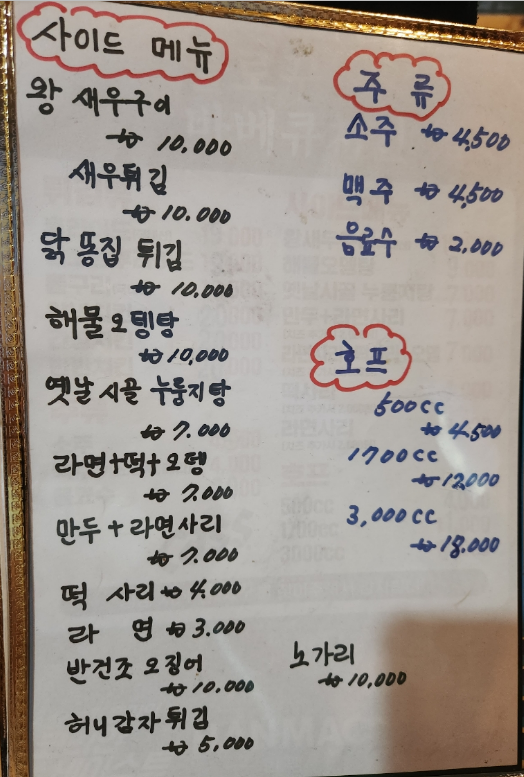 사이드 메뉴
왕 새우구이
₩ 10,000
새우튀김
₩ 10.000
닭 똥집 튀김
₩ 10,000
해물오텡탕
₩10,000
옛날 시골 누룽지탕
₩ 7.000
라면+떡+오뎅
₩ 7.000
만두 + 라면사리
₩ 7.000
떡 사리 ₩ 4.000
라 면 ₩ 3.000
반건조 오징어
₩ 10.000
허니감자튀김
₩ 5,000
주 류
소주 ₩ 4,500
맥주 ₩ 4,500
음료수 ₩ 2,000
호프
500cc
₩ 4,500
1700cc
₩12,000
3,000cc
₩18.000
노가리
₩ 10,000